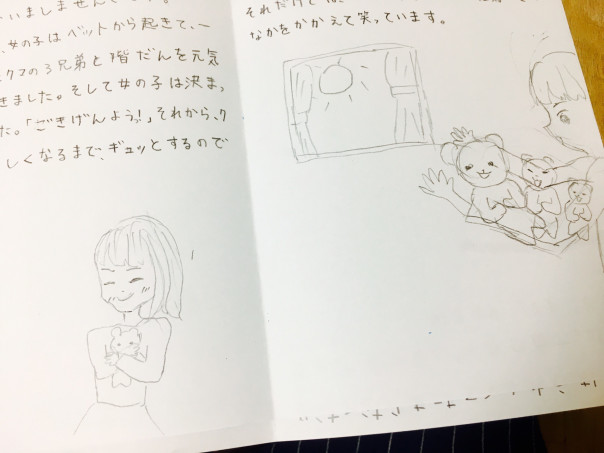 いましません
、女の子はベットから起きて、一
クマの3兄弟と階だんを元気
きました。そして女の子は決まっ
た。「ごきげんようっ!」それから、ク
しくなるまで、ギュッとするので
それだけでは、
なかをかかえて笑っています。